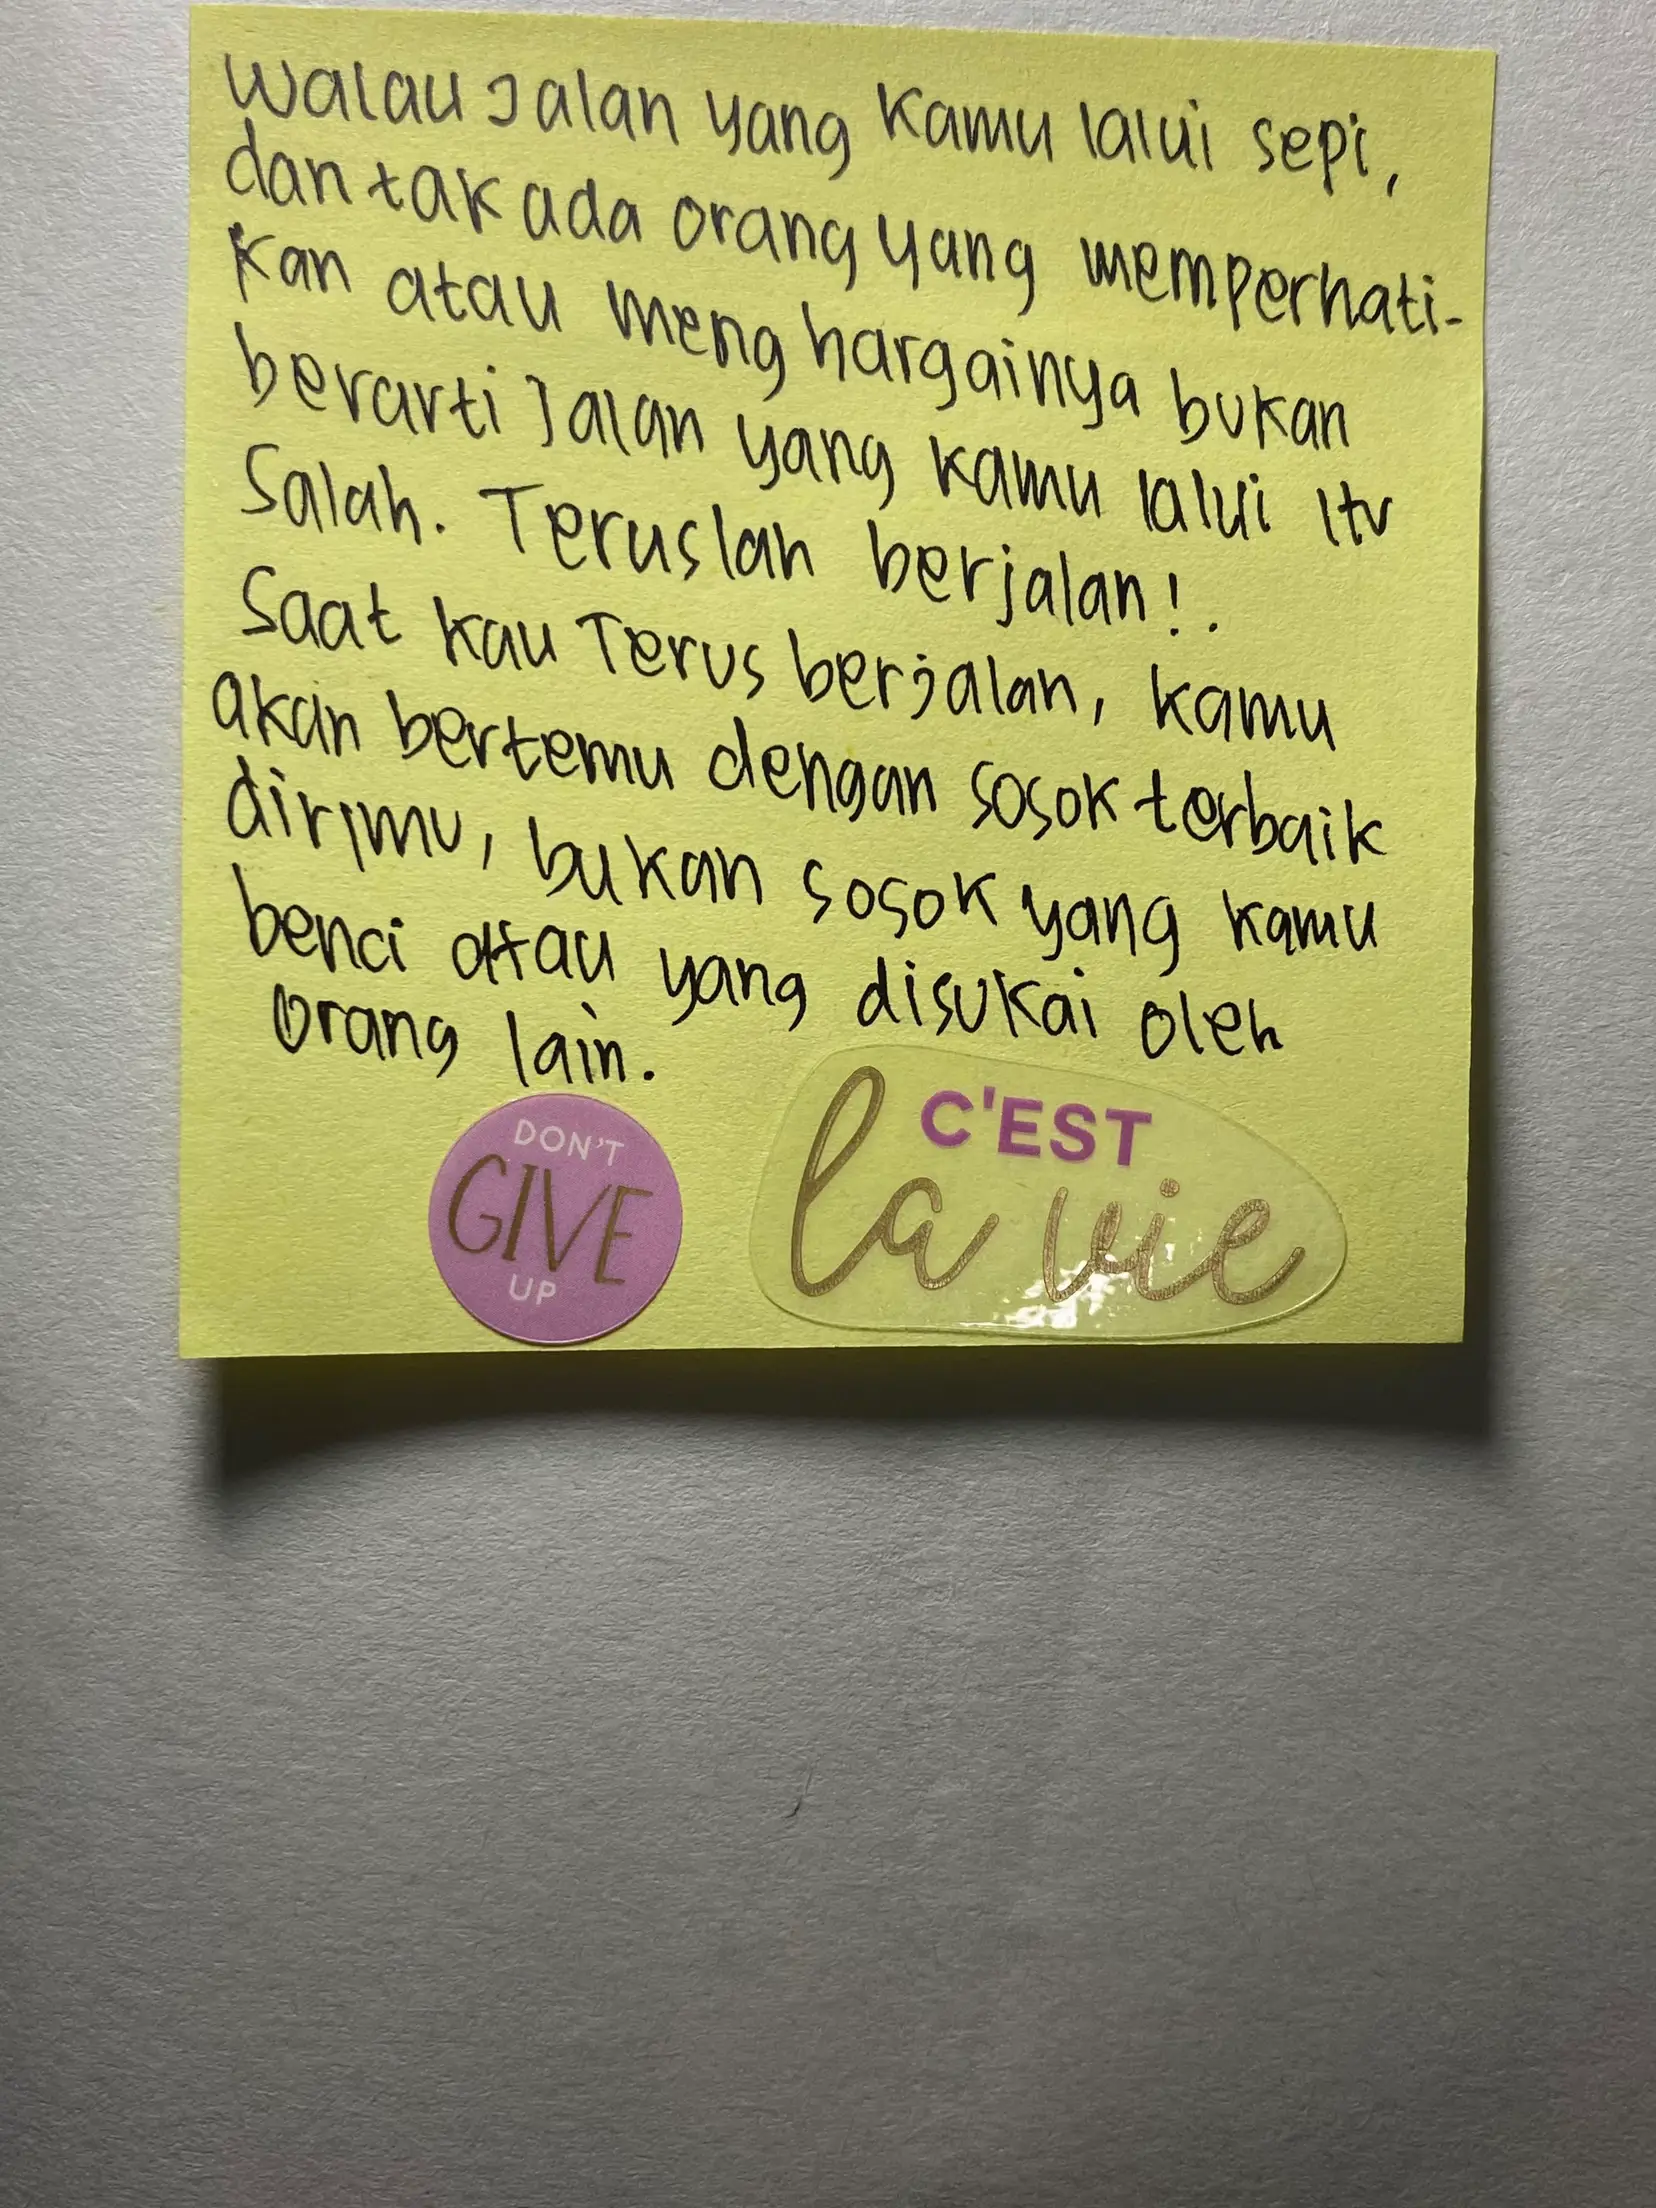 Walau Jalan yang kamu lalui sepi,
dan tak ada orang yang memperhati-
kan atau menghargainya bukan
berarti Jalan yang kamu lalui itu
Salah. Teruslah berjalan!.
Saat kau Terus berjalan, kamu
akan bertemu dengan sosok terbaik
dirimu, bukan sosok yang kamu
benci attau yang disukai oleh
orang lain.
DON'T
GIVE
UP
C'EST
la vie